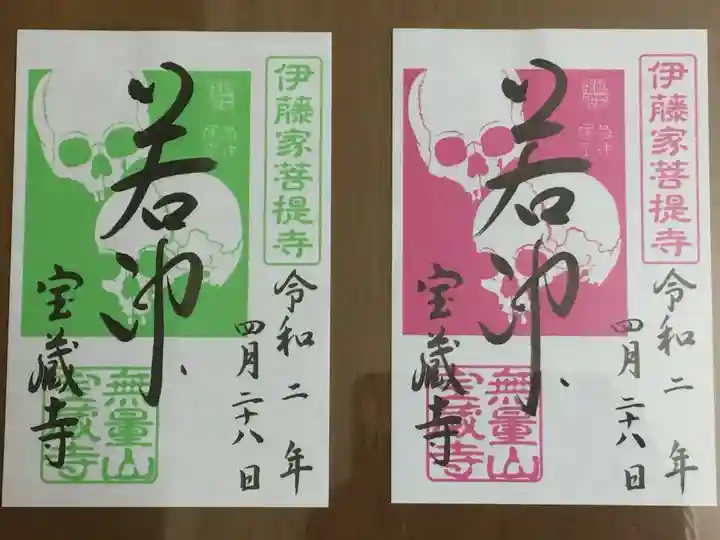 伊藤家菩提寺
若冲
令和二年
四月二十八日
宝蔵寺
無量山
宝蔵寺
伊藤家菩提寺
若冲
令和二年
四月二十八日
宝蔵寺
無量山
宝蔵寺